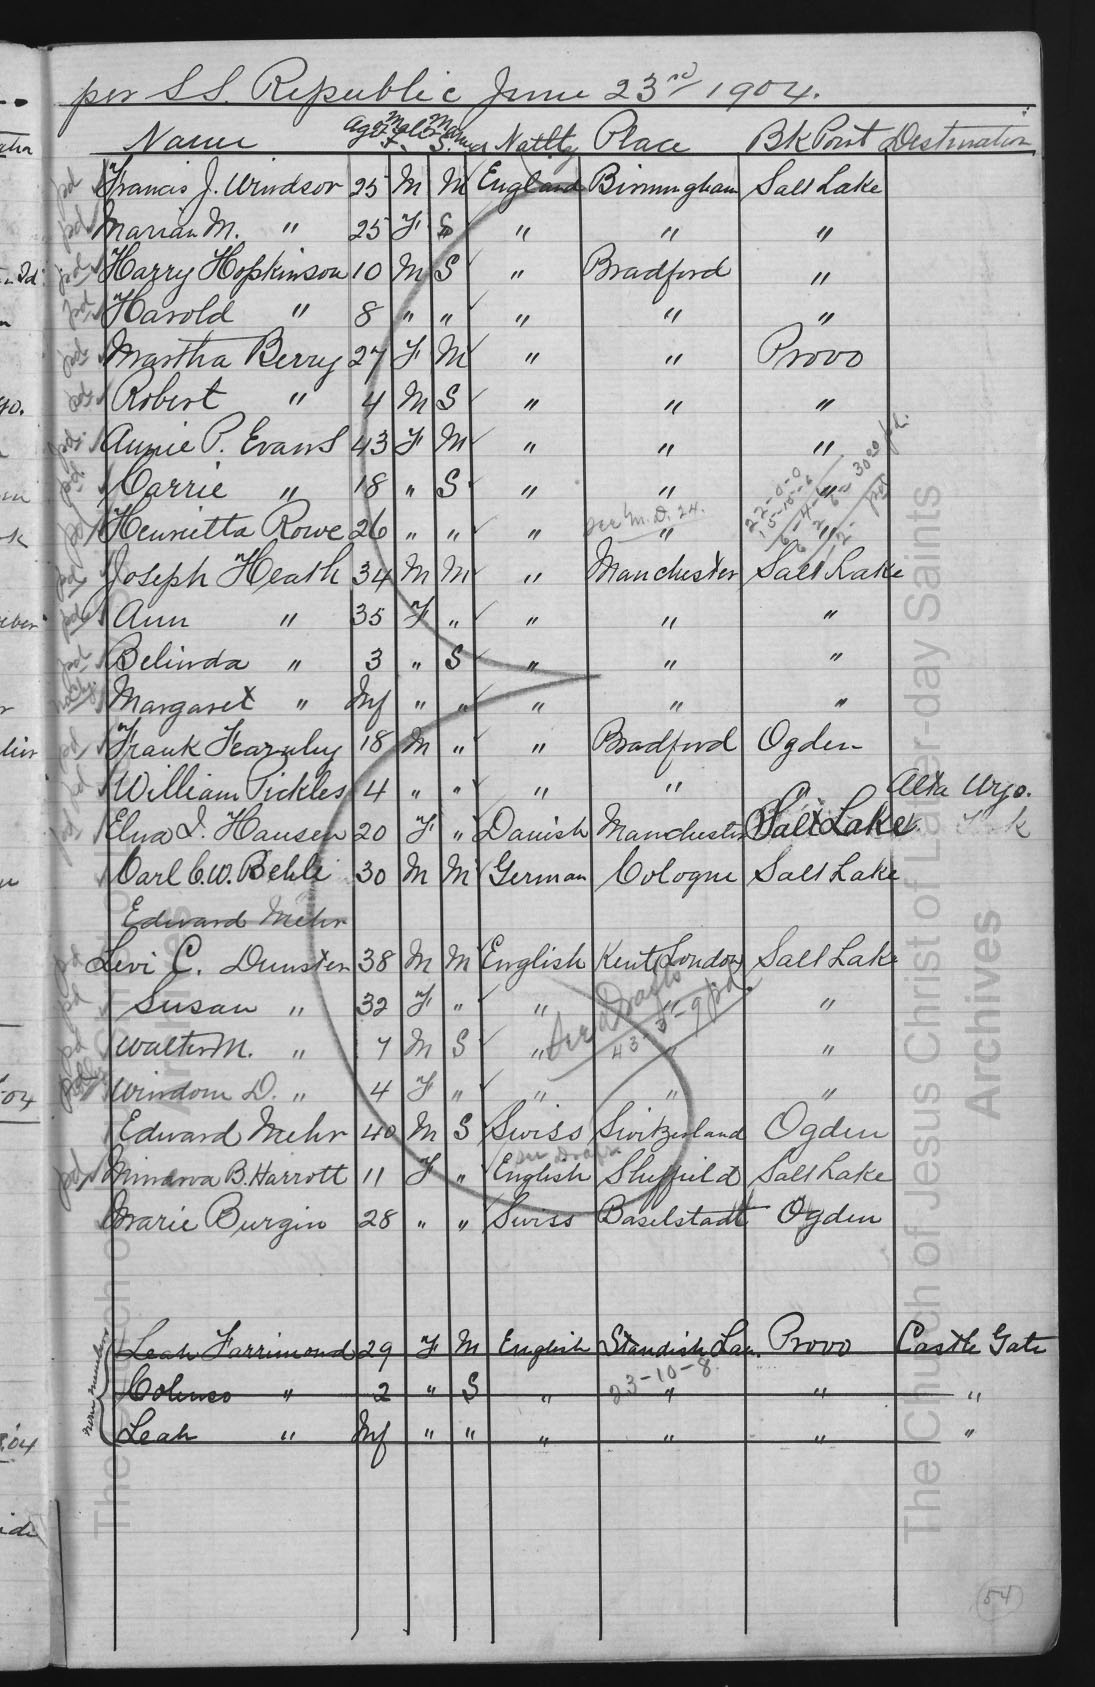 per S.S. Republic June 23rd 1904.
Name Age Male F. Mar S. Natlty Place Bk Point Destination
pd Francis J. Windsor 25 M M England Birmingham Salt Lake
pd Marian M. " 25 F S " " "
pd Harry Hopkinson 10 M S " Bradford "
pd Harold " 8 " " " " "
pd Martha Berry 27 F M " " Provo
pd Robert " 4 M S " " "
pd Annie P. Evans 43 F M " " "
pd Carrie " 18 " S " " "
see M.D. 24.
pd Henrietta Rowe 26 " " " " "
pd Joseph Heath 34 M M " Manchester Salt Lake
pd Ann " 35 F " " " "
pd Belinda " 3 " S " " "
Margaret " Inf " " " " "
pd Frank Fearnley 18 M " " Bradford Ogden
pd William Pickles 4 " " " " " Alta Wyo.
pd Elna I. Hansen 20 F " Danish Manchester Salt Lake
Carl C.W. Behle 30 M M German Cologne Salt Lake
Edward Mehr
pd Levi C. Dunster 38 M M English Kent London Salt Lake
pd Susan " 32 F " " " "
See Drafts 43-3-9 pd.
pd Walter M. " 7 M S " " "
Windom D. " 4 F " " " "
Edward Mehr 40 M S Swiss Switzerland Ogden
see Drafts
pd Minerva B. Harrott 11 F " English Sheffield Salt Lake
Marie Burgin 28 " " Swiss Baselstadt Ogden
non members
Leah Farrimond 29 F M English Standish Lan. Provo Castle Gate
23-10-8
Colenso " 2 " S " " " "
Leah " Inf " " " " " "
54
The Church of Jesus Christ of Latter-day Saints
Archives